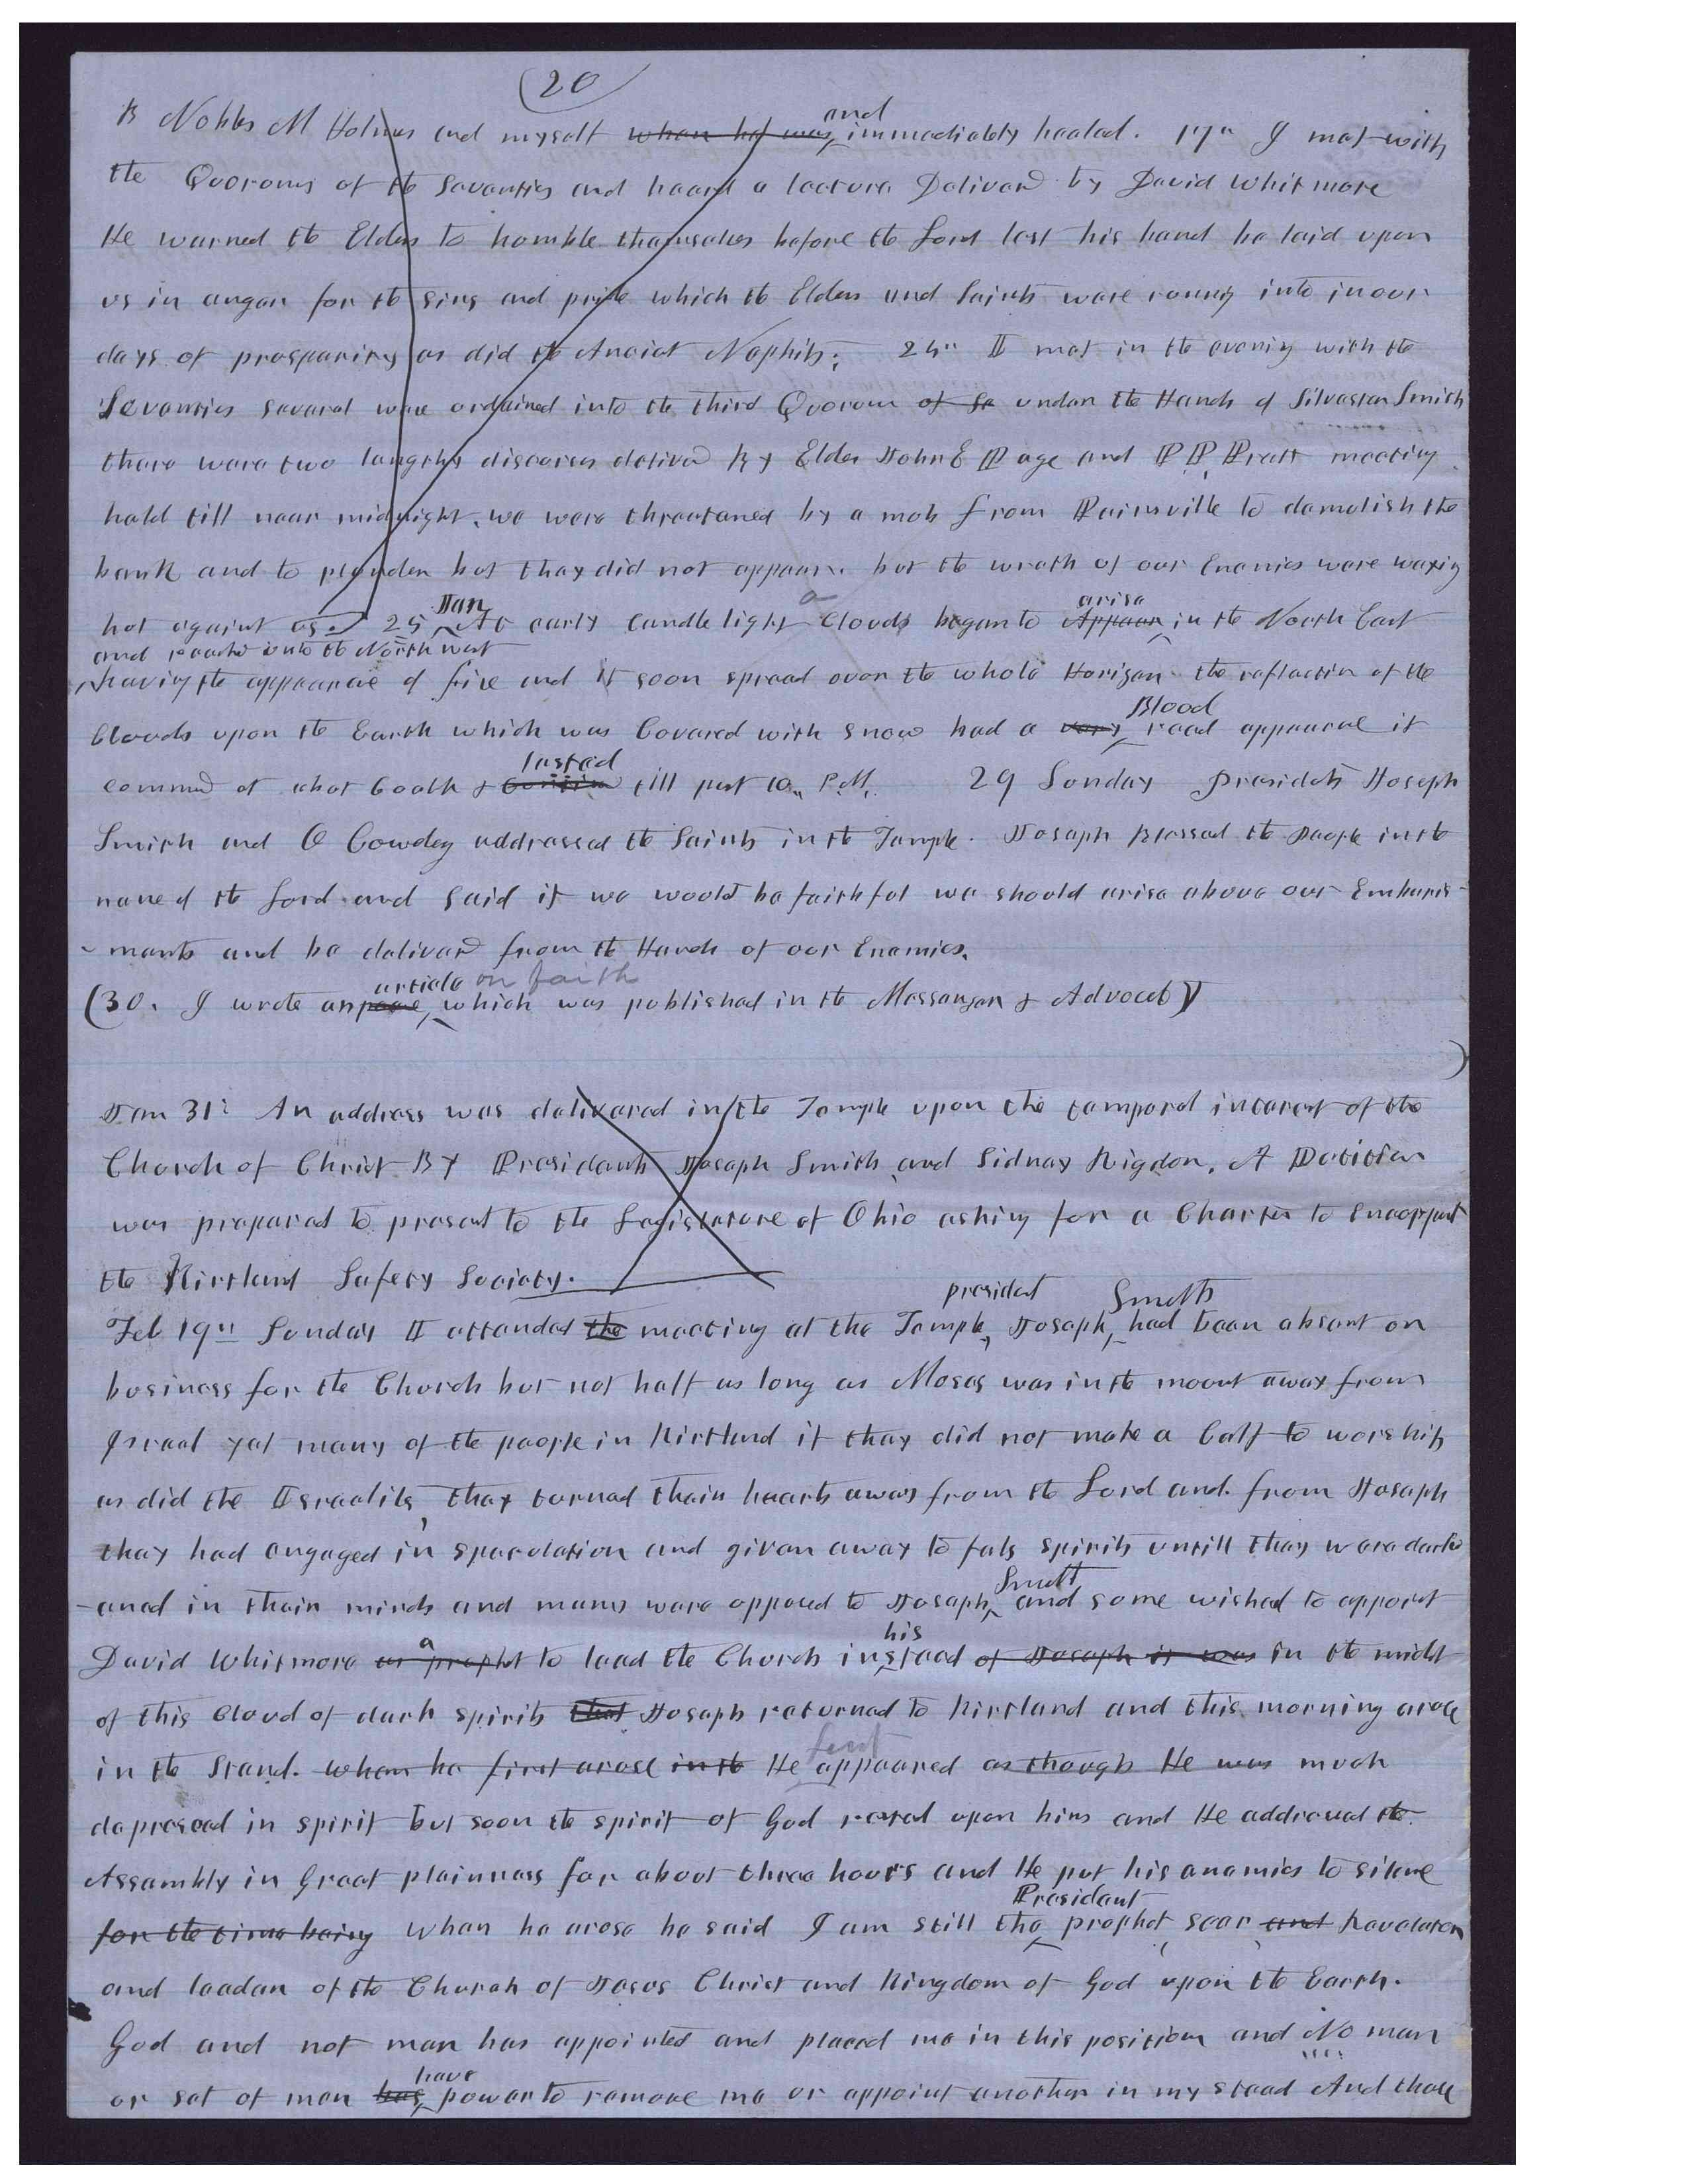 20
and
B Nobles M Holmes and myself when he was immediately healed. 17" I met with
the Quorums of the Seventies and heard a lecture Deliverd by David Whitmore
He warned the Elders to humble themselves before the Lord lest his hand be laid upon
us in anger for the sins and pride which the Elders and Saints were runing into in our
days of prosperity as did the Anciet Nephits; 24" I met in the evening with the
Seventies several were ordained into the third Quorum of Se under the Hands of Silvester Smith
there were two lengthy discourses deliverd By Elder John E Page and P P Pratt meeting
held till near midnight, we were threatened by a mob from Painsville to demolish the
bank and to plunder but they did not appear. but the wrath of our Enemies were waxing
Jan a arise
hot against us. 25 At early candle light Clouds began to Appear in the North East
and reached into the North west
having the appearance of fire and it soon spread over the whole Horizen the reflection of the
Blood
Clouds upon the Earth which was Covered with snow had a very read appearance it
lasted
commed at 6 ock & till past 10, P.M. 29 Sunday presidets Joseph
Smith and O Cowdey addressed the Saints in the Temple. Joseph Blessed the People in the
name of the Lord and said if we would be faithful we should arise above our Embaris-
-ments and be deliverd from the Hands of our Enemies.
article on faith
(30. I wrote an peace which was published in the Messenger & Advocet)
)
Jan 31: An address was delivered in the Temple upon the temporal interest of the
Church of Christ By Presidents Joseph Smith and Sidney Rigdon. A Petition
was prepared to present to the Legislature of Ohio asking for a Charter to
the Kirtland Safety Society.
president Smith
Feb 19" Sunday I attended the meeting at the Temple, Joseph, had been absent on
business for the Church but not half as long as Moses was in the mount away from
Israel yet many of the people in Kirtland if they did not make a Calf to worship
as did the Israelits, they turned their hearts away from the Lord and from Joseph
they had engaged in speculation and given away to fals spirits untill they were dark
Smith
-ened in their minds and many were opposed to Joseph and some wished to appoint
a his
David Whitmore as prophet to lead the Church instead of Joseph it was in the midst
of this Cloud of dark spirits that Joseph returned to Kirtland and this morning arose
in the Stand. when he first arose in the He appeared as though He was much
depressed in spirit but soon the spirit of God rested upon him and He addressed the
Assembly in Great plainness for about three hours and He put his enemies to silence
President
for the time being when he arose he said I am still the prophet, seer, and Revelator
and leader of the Church of Jesus Christ and Kingdom of God upon the Earth.
God and not man has appointed and placed me in this position and No man
have
or set of men has power to remove me or appoint another in my stead And those